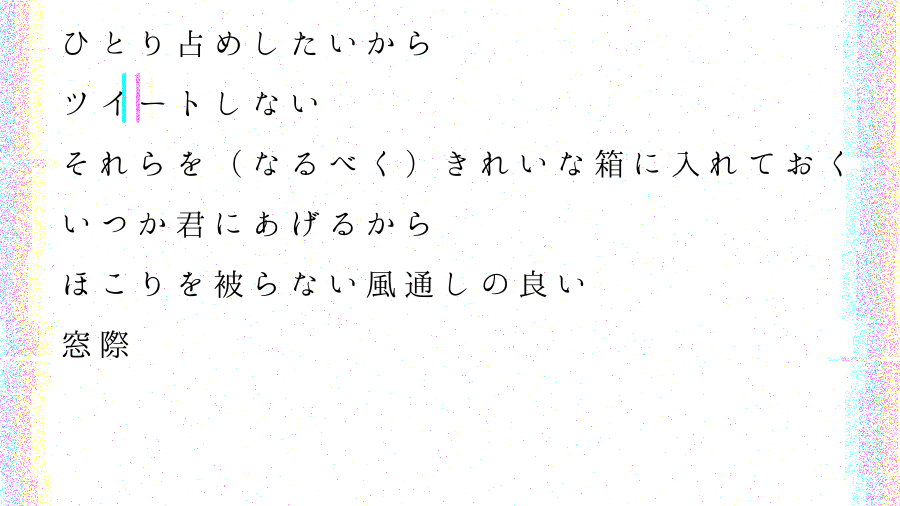 ひとり占めしたいから
ツイートしない
それらを（なるべく）きれいな箱に入れておく
いつか君にあげるから
ほこりを被らない風通しの良い
窓際